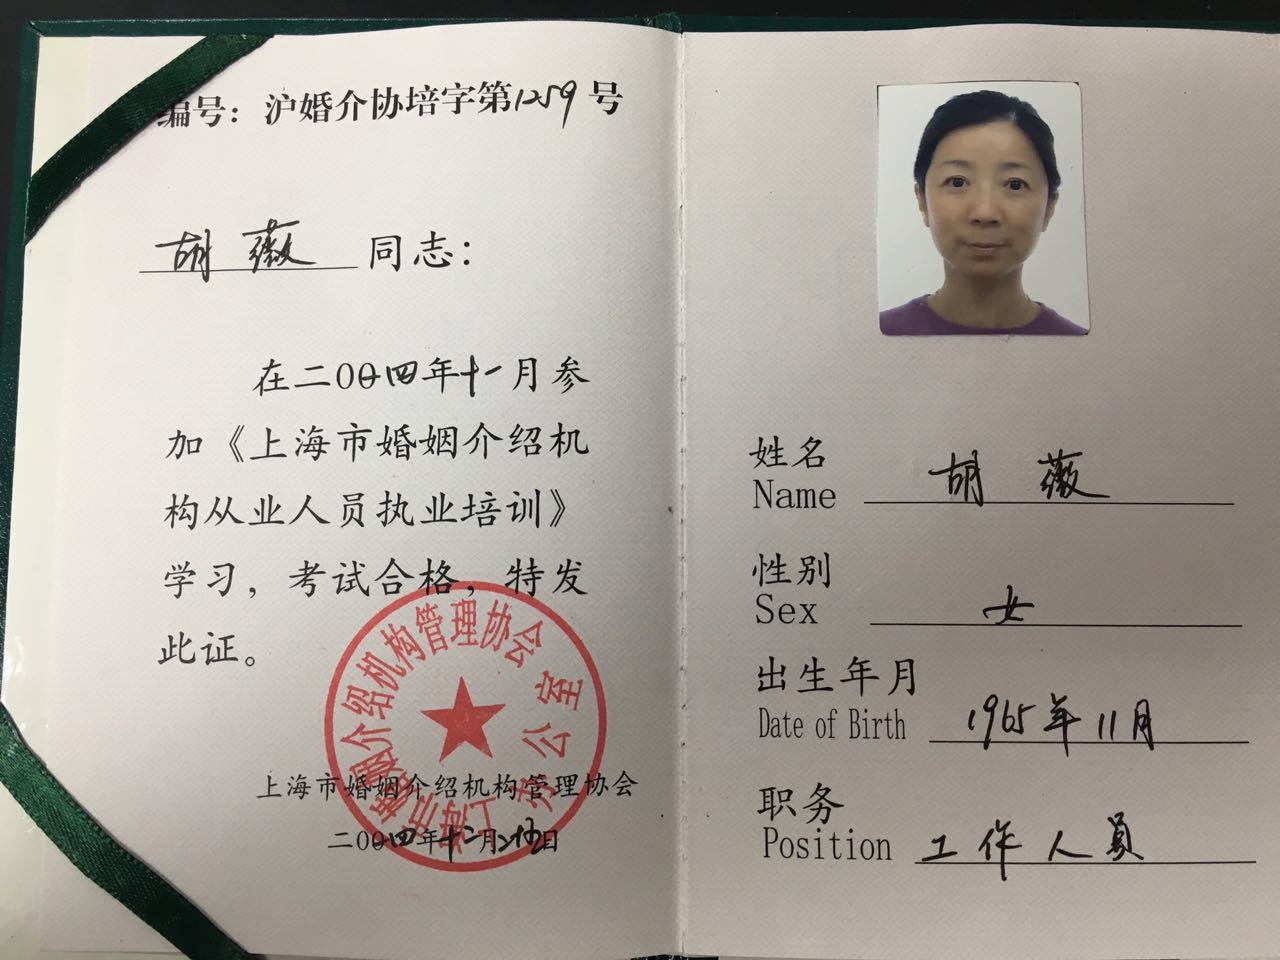 编号：沪婚介协培字第1259号
胡薇 同志：
在二00四年十一月参
加《上海市婚姻介绍机
构从业人员执业培训》
学习，考试合格，特发
此证。
上海市婚姻介绍机构管理协会
二00四年十二月 日
上海市婚姻介绍机构管理协会办公室
姓名
Name 胡薇
性别
Sex 女
出生年月
Date of Birth 1965年11月
职务
Position 工作人员